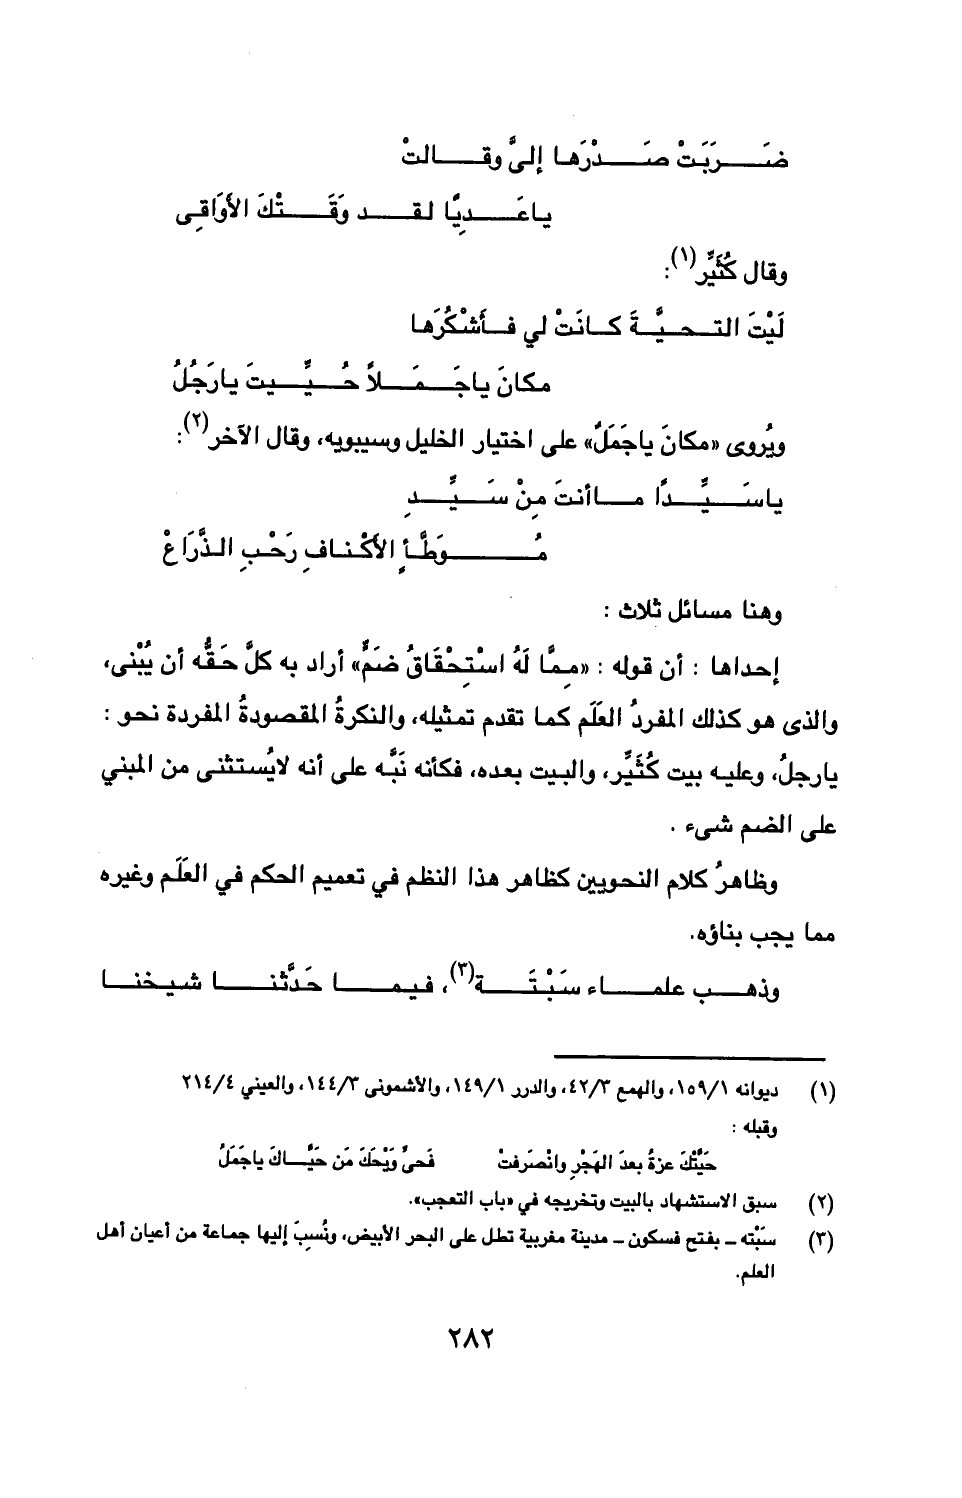 ضَرَبَتْ صَدْرَهَا إلىَّ وقالتْ
ياعَدِيًّا لقد وَقَتْكَ الأَوَاقِى
وقال كُثَيِّر(١):
لَيْتَ التحيَّةَ كانَتْ لي فأَشْكُرَها
مكانَ ياجَمَلاً حُيِّيتَ يارَجُلُ
ويُروى «مكانَ ياجَمَلُ» على اختيار الخليل وسيبويه، وقال الآخر(٢):
ياسَيِّدًا ماأنتَ مِنْ سَيِّدِ
مُوَطَّأِ الأكْنافِ رَحْبِ الذَّرَاعْ
وهنا مسائل ثلاث :
إحداها : أن قوله : «مِمَّا لَهُ اسْتِحْقَاقُ ضَمٍّ» أراد به كلَّ حَقُّه أن يُبْنى،
والذى هو كذلك المفردُ العَلَم كما تقدم تمثيله، والنكرةُ المقصودةُ المفردة نحو :
يارجلُ، وعليه بيت كُثَيِّر، والبيت بعده، فكأنه نَبَّه على أنه لايُستثنى من المبني
على الضم شىء .
وظاهرُ كلام النحويين كظاهر هذا النظم في تعميم الحكم في العَلَم وغيره
مما يجب بناؤه.
وذهب علماء سَبْتَة(٣)، فيما حَدَّثنا شيخنا
(١) ديوانه ١٥٩/١، والهمع ٤٢/٣، والدرر ١٤٩/١، والأشمونى ١٤٤/٣، والعيني ٢١٤/٤
وقبله :
حَيَّتْكَ عزةُ بعدَ الهَجْرِ وانْصَرفتْ فَحىِّ وَيْحَكَ مَن حَيَّاكَ ياجَمَلُ
(٢) سبق الاستشهاد بالبيت وتخريجه في «باب التعجب».
(٣) سَبْته – بفتح فسكون – مدينة مغربية تطل على البحر الأبيض، ونُسِبَ إليها جماعة من أعيان أهل
العلم.
٢٨٢